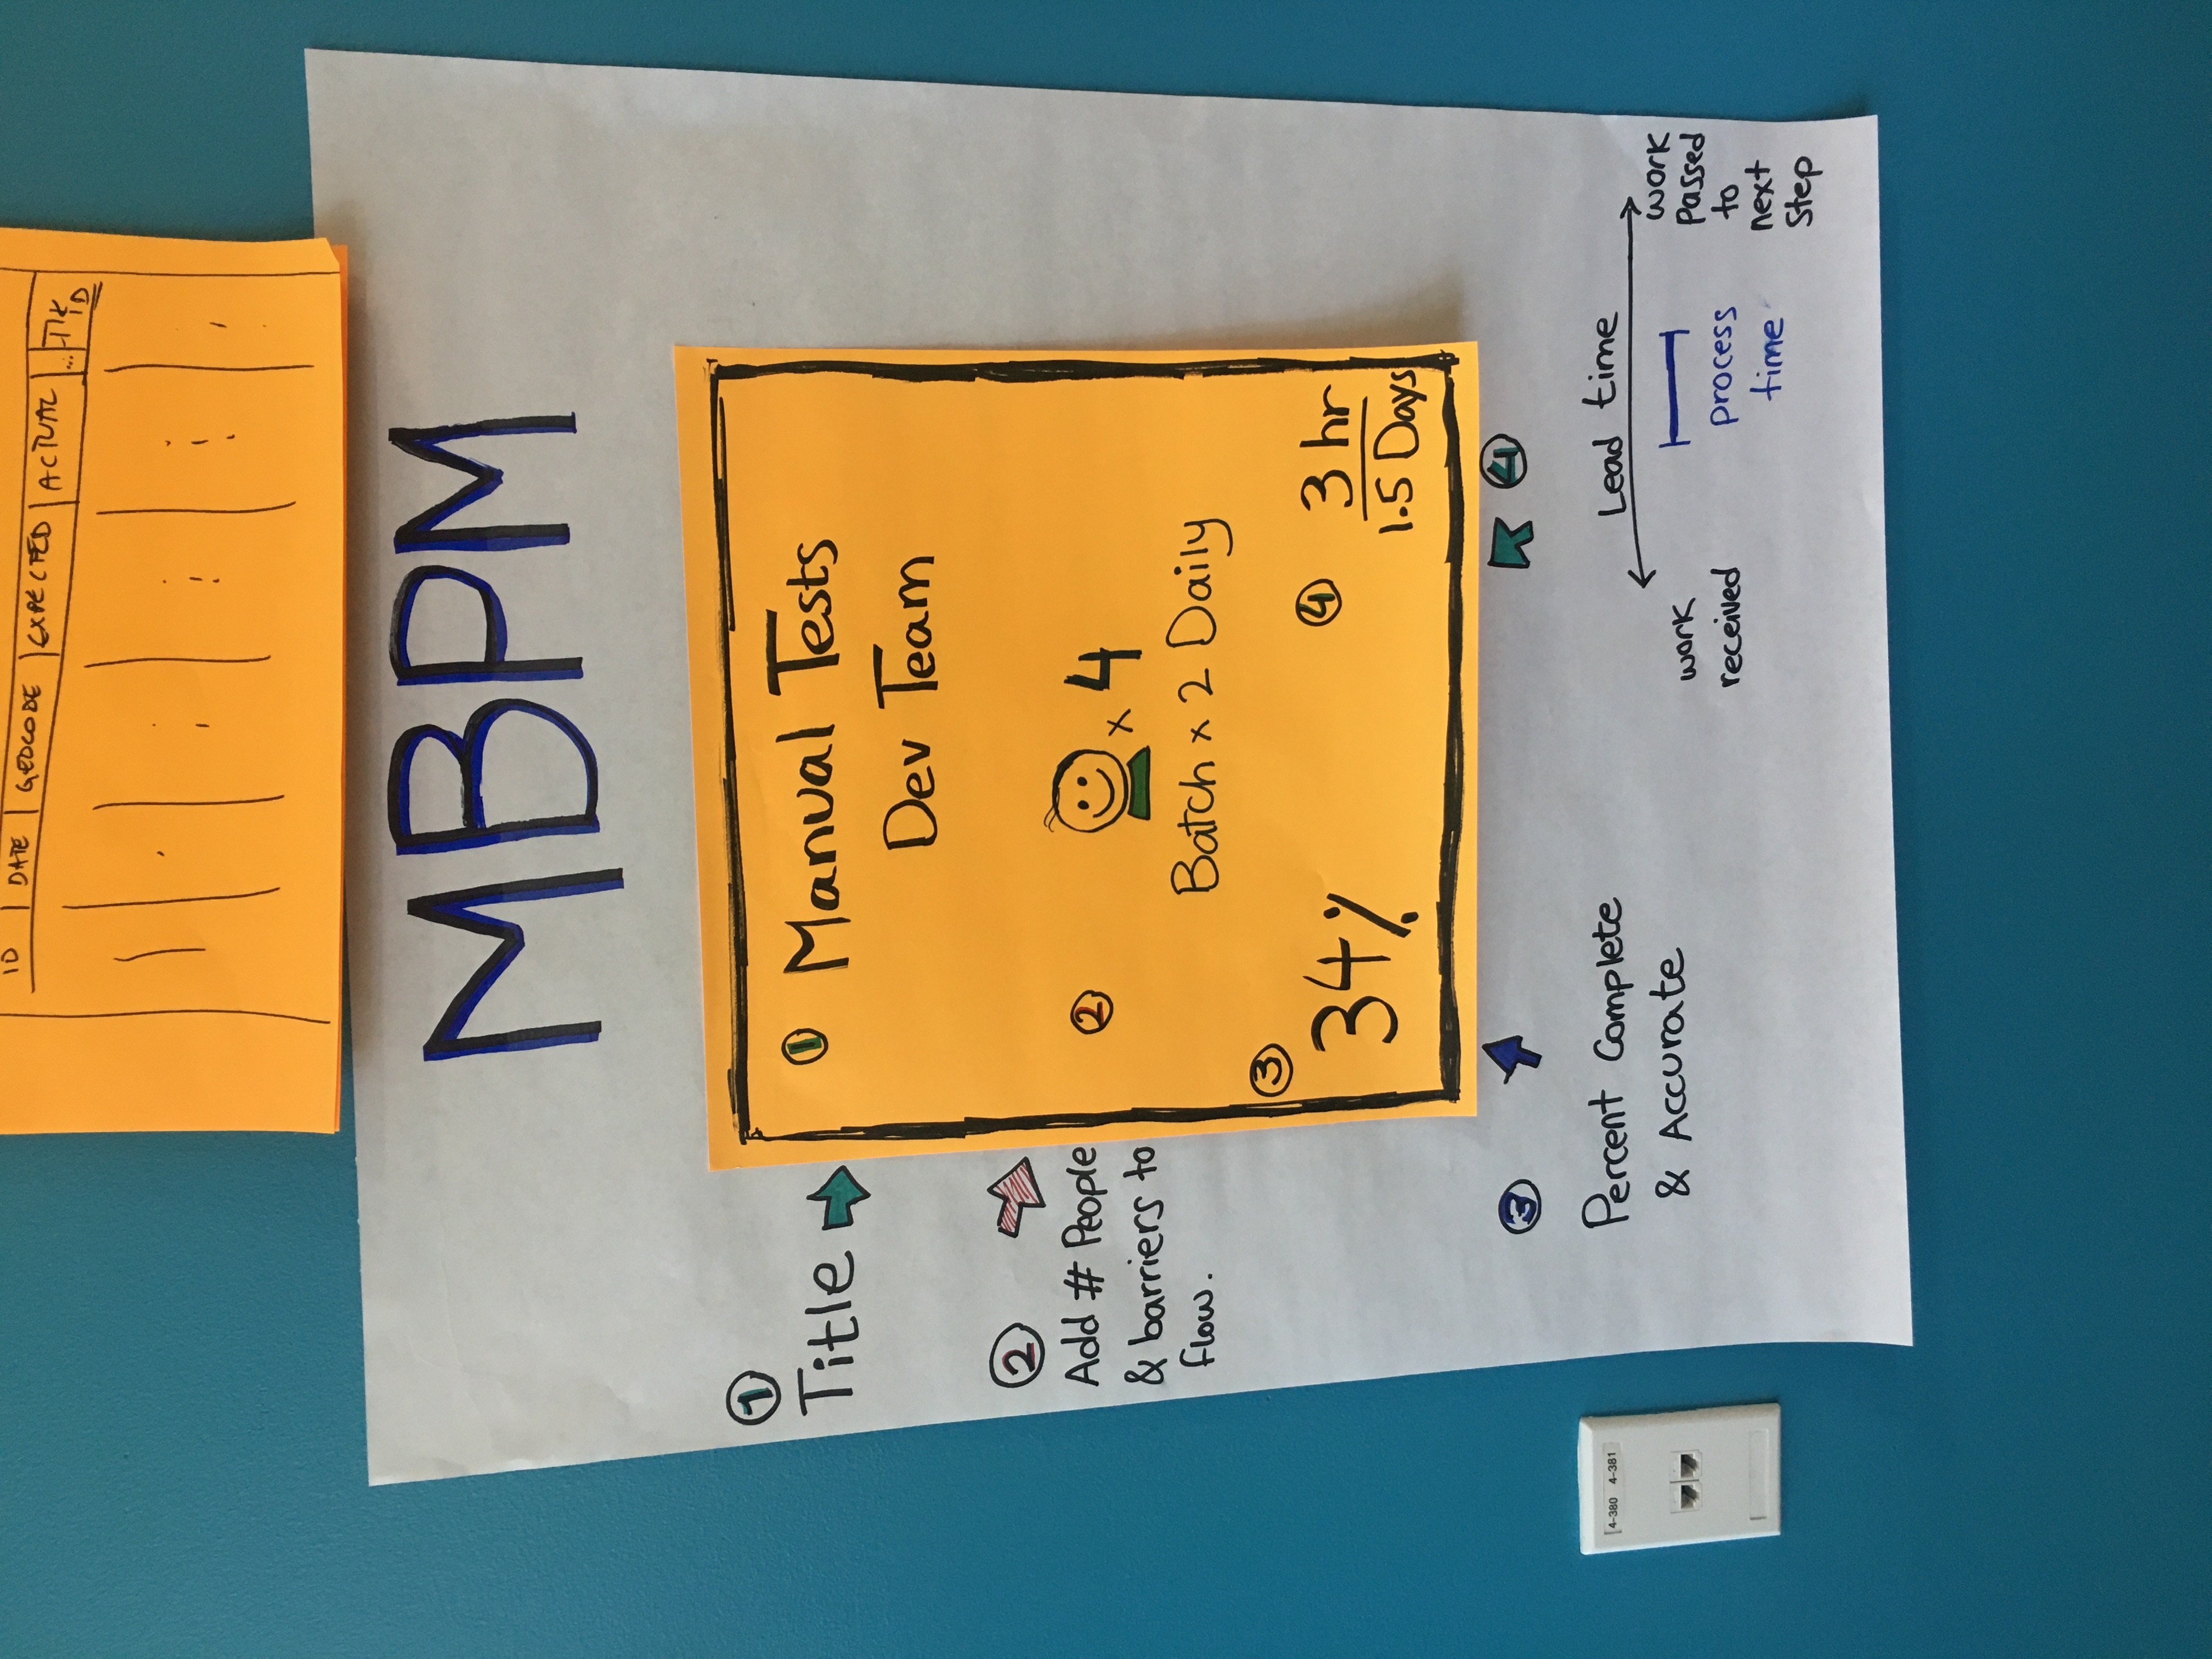 ID | DATE | GEOCODE | EXPECTED | ACTUAL | ... | TIK ID
MBPM
1
Title
1 Manual Tests
Dev Team
2
Add # People
& barriers to
flow.
2 x 4
Batch x 2 Daily
3
34%
4 3 hr
1.5 Days
3
Percent Complete
& Accurate
4
Lead time
work
received
process
time
work
passed
to
next
step
4-380 4-381